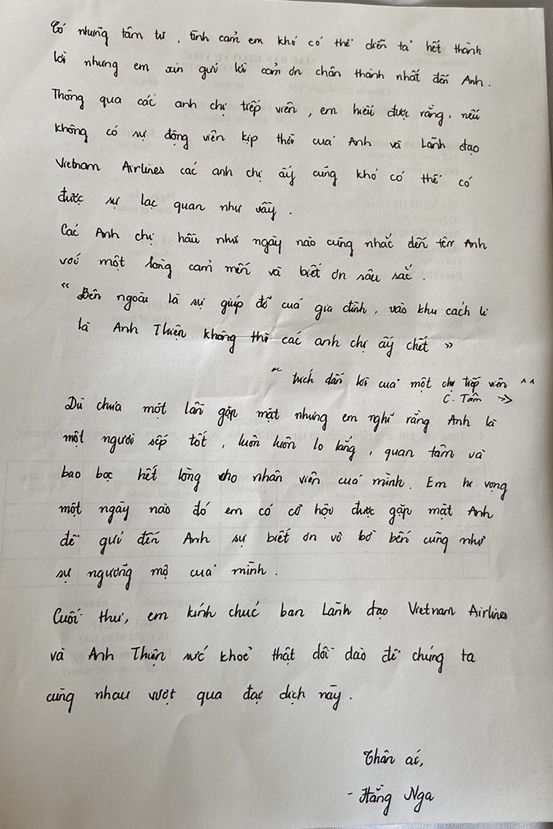 Có những tâm tư, tình cảm em khó có thể diễn tả hết thành
lời nhưng em xin gửi lời cảm ơn chân thành nhất đến Anh.
Thông qua các anh chị tiếp viên, em hiểu được rằng, nếu
không có sự động viên kịp thời của Anh và Lãnh đạo
Vietnam Airlines các anh chị ấy cũng khó có thể có
được sự lạc quan như vậy.
Các Anh chị hầu như ngày nào cũng nhắc đến tên Anh
với một lòng cảm mến và biết ơn sâu sắc.
"Bên ngoài là sự giúp đỡ của gia đình, vào khu cách li
là Anh Thiện không thì các anh chị ấy chết"
"trích dẫn lời của một chị tiếp viên ^^
C. Tâm →>
Dù chưa một lần gặp mặt nhưng em nghĩ rằng Anh là
một người sếp tốt, luôn luôn lo lắng, quan tâm và
bao bọc hết lòng cho nhân viên của mình. Em hi vọng
một ngày nào đó em có cơ hội được gặp mặt Anh
để gửi đến Anh sự biết ơn vô bờ bến cũng như
sự ngưỡng mộ của mình.
Cuối thư, em kính chúc ban Lãnh đạo Vietnam Airlines
và Anh Thiện sức khoẻ thật dồi dào để chúng ta
cùng nhau vượt qua đại dịch này.
Thân ái,
- Hằng Nga